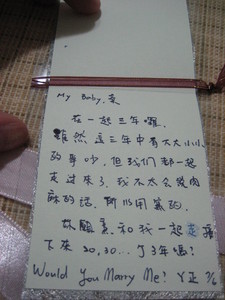 My Baby,
在一起三年囉,
雖然這三年中有大大小小
的爭吵,但我们都一起
走過來了,我不太会說肉
麻的話,所以用寫的,
妳願意和我一起走
下来30,30...了3年嗎?
Would You Marry Me?